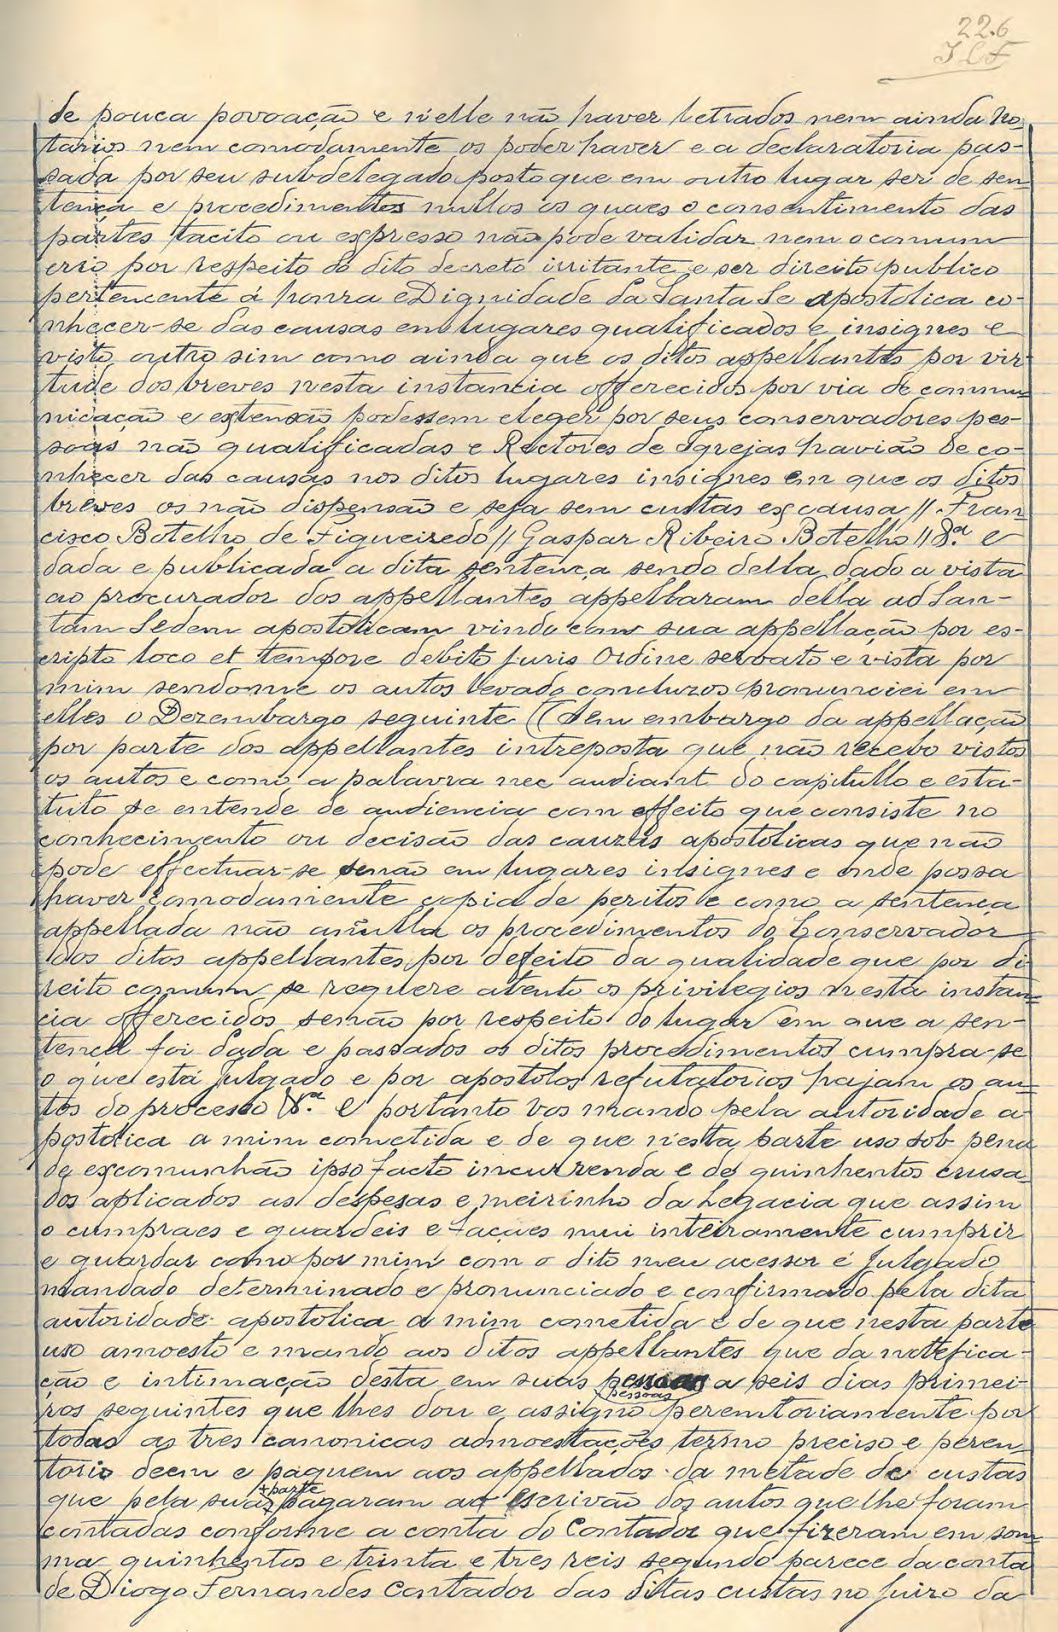 226
JCF
de pouca povoação e n'elle não haver letrados nem ainda no-
tarios nem comodamente os poder haver e a declaratoria pas-
sada por seu subdelegado posto que em outro lugar ser de sen
tença e procedimentos nullos os quaes o consentimento das
partes tacito ou expresso não pode validar nem o comum
erro por respeito do dito decreto irritante e ser direito publico
pertencente á honra e Dignidade da Santa Se apostolica co-
nhecer-se das causas em lugares qualificados e insignes e
visto outro sim como ainda que os ditos appellantes por vir-
tude dos breves nesta instancia offerecidos por via de commu-
nicação e extensão podessem eleger por seus conservadores pes-
soas não qualificadas e Rectores de Igrejas havião de co-
nhecer das causas nos ditos lugares insignes em que os ditos
breves os não dispensão e seja sem custas ex causa // Fran
cisco Botelho de Figueiredo // Gaspar Ribeiro Botelho // &.ª e
dada e publicada a dita sentença sendo della dado a vista
ao procurador dos appellantes appellaram della ad San-
tam Sedem apostolicam vindo com sua appellação por es-
cripto loco et tempore debito juris Ordine servato e vista por
mim sendo-me os autos levado concluzos pronunciei em
elles o Dezembargo seguinte (Sem embargo da appellação
por parte dos appellantes intreposta que não recebo vistos
os autos e como a palavra nec audiant do capitullo e esta-
tuto se entende de audiencia com effeito que consiste no
conhecimento ou decisão das cauzas apostolicas que não
pode effectuar-se senão em lugares insignes e onde possa
haver comodamente copia de peritos e como a sentença
appellada não anulla os procedimentos do Conservador
dos ditos appellantes por defeito da qualidade que por di
reito comum se requere atento os privilegios nesta instan-
cia offerecidos senão por respeito do lugar em que a sen-
tença foi dada e passados os ditos procedimentos cumpra-se
o que está julgado e por apostolos refutatorios hajam os au-
tos do processo &.ª e portanto vos mando pela autoridade a-
postolica a mim cometida e de que n'esta parte uso sob pena
de excomunhão ipso facto incurrenda e de quinhentos crusa-
dos aplicados as despesas e meirinho da Legacia que assim
o cumpraes e guardeis e façaes mui inteiramente cumprir
e guardar como por mim com o dito meu acessor é julgado
mandado determinado e pronunciado e confirmado pela dita
autoridade apostolica a mim cometida e de que nesta parte
uso amoesto e mando aos ditos appellantes que da notefica-
ção e intimação desta em suas a seis dias primei-
pessoas
ros seguintes que lhes dou e assigno peremtoriamente por
todas as tres canonicas admoestações termo preciso e peren-
torio deem e paguem aos appellados da metade de custas
+parte
que pela sua + pagaram ao escrivão dos autos que lhe foram
contadas conforme a conta do Contador que fizeram em som-
ma quinhentos e trinta e tres reis segundo parece da conta
de Diogo Fernandes Contador das ditas custas no juizo da